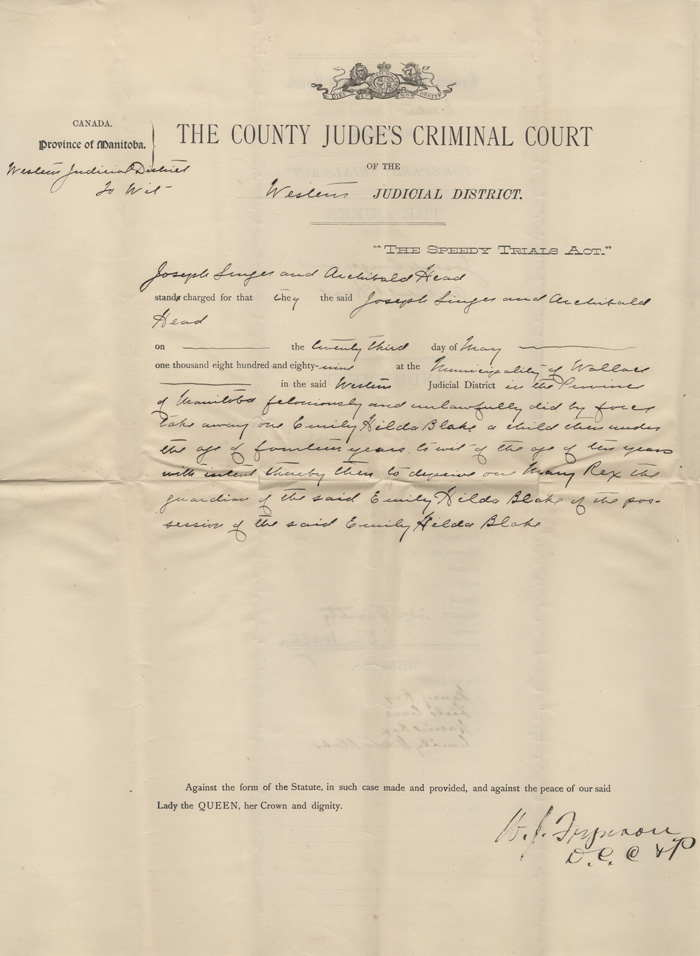 CANADA.
Province of Manitoba.
Western Judicial District
To Wit
THE COUNTY JUDGE'S CRIMINAL COURT
OF THE
Western JUDICIAL DISTRICT.
"THE SPEEDY TRIALS ACT."
Joseph Singer and Archibald Head
stands charged for that they the said Joseph Singer and Archibald
Head
on the twenty third day of May
one thousand eight hundred and eighty-nine at the Municipality of Wallace
in the said Western Judicial District in the Province
of Manitoba feloniously and unlawfully did by force
take away one Emily Hilda Blake a child then under
the age of fourteen years to wit of the age of ten years
with intent thereby then to deprive one Mary Rex the
guardian of the said Emily Hilda Blake of the pos-
session of the said Emily Hilda Blake
Against the form of the Statute, in such case made and provided, and against the peace of our said
Lady the QUEEN, her Crown and dignity.
D. C. C & P